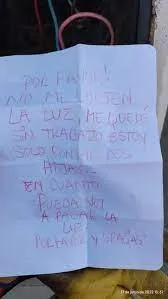 POR FAVOR!
NO ME DEJEN
LA LUZ, ME QUEDÉ
SIN TRABAJO ESTOY
SOLO CON MIS DOS
HIJAS...
EN CUANTO
PUEDA VOY
A PAGAR LA
LUZ
PORFAVOR Y GRACIAS